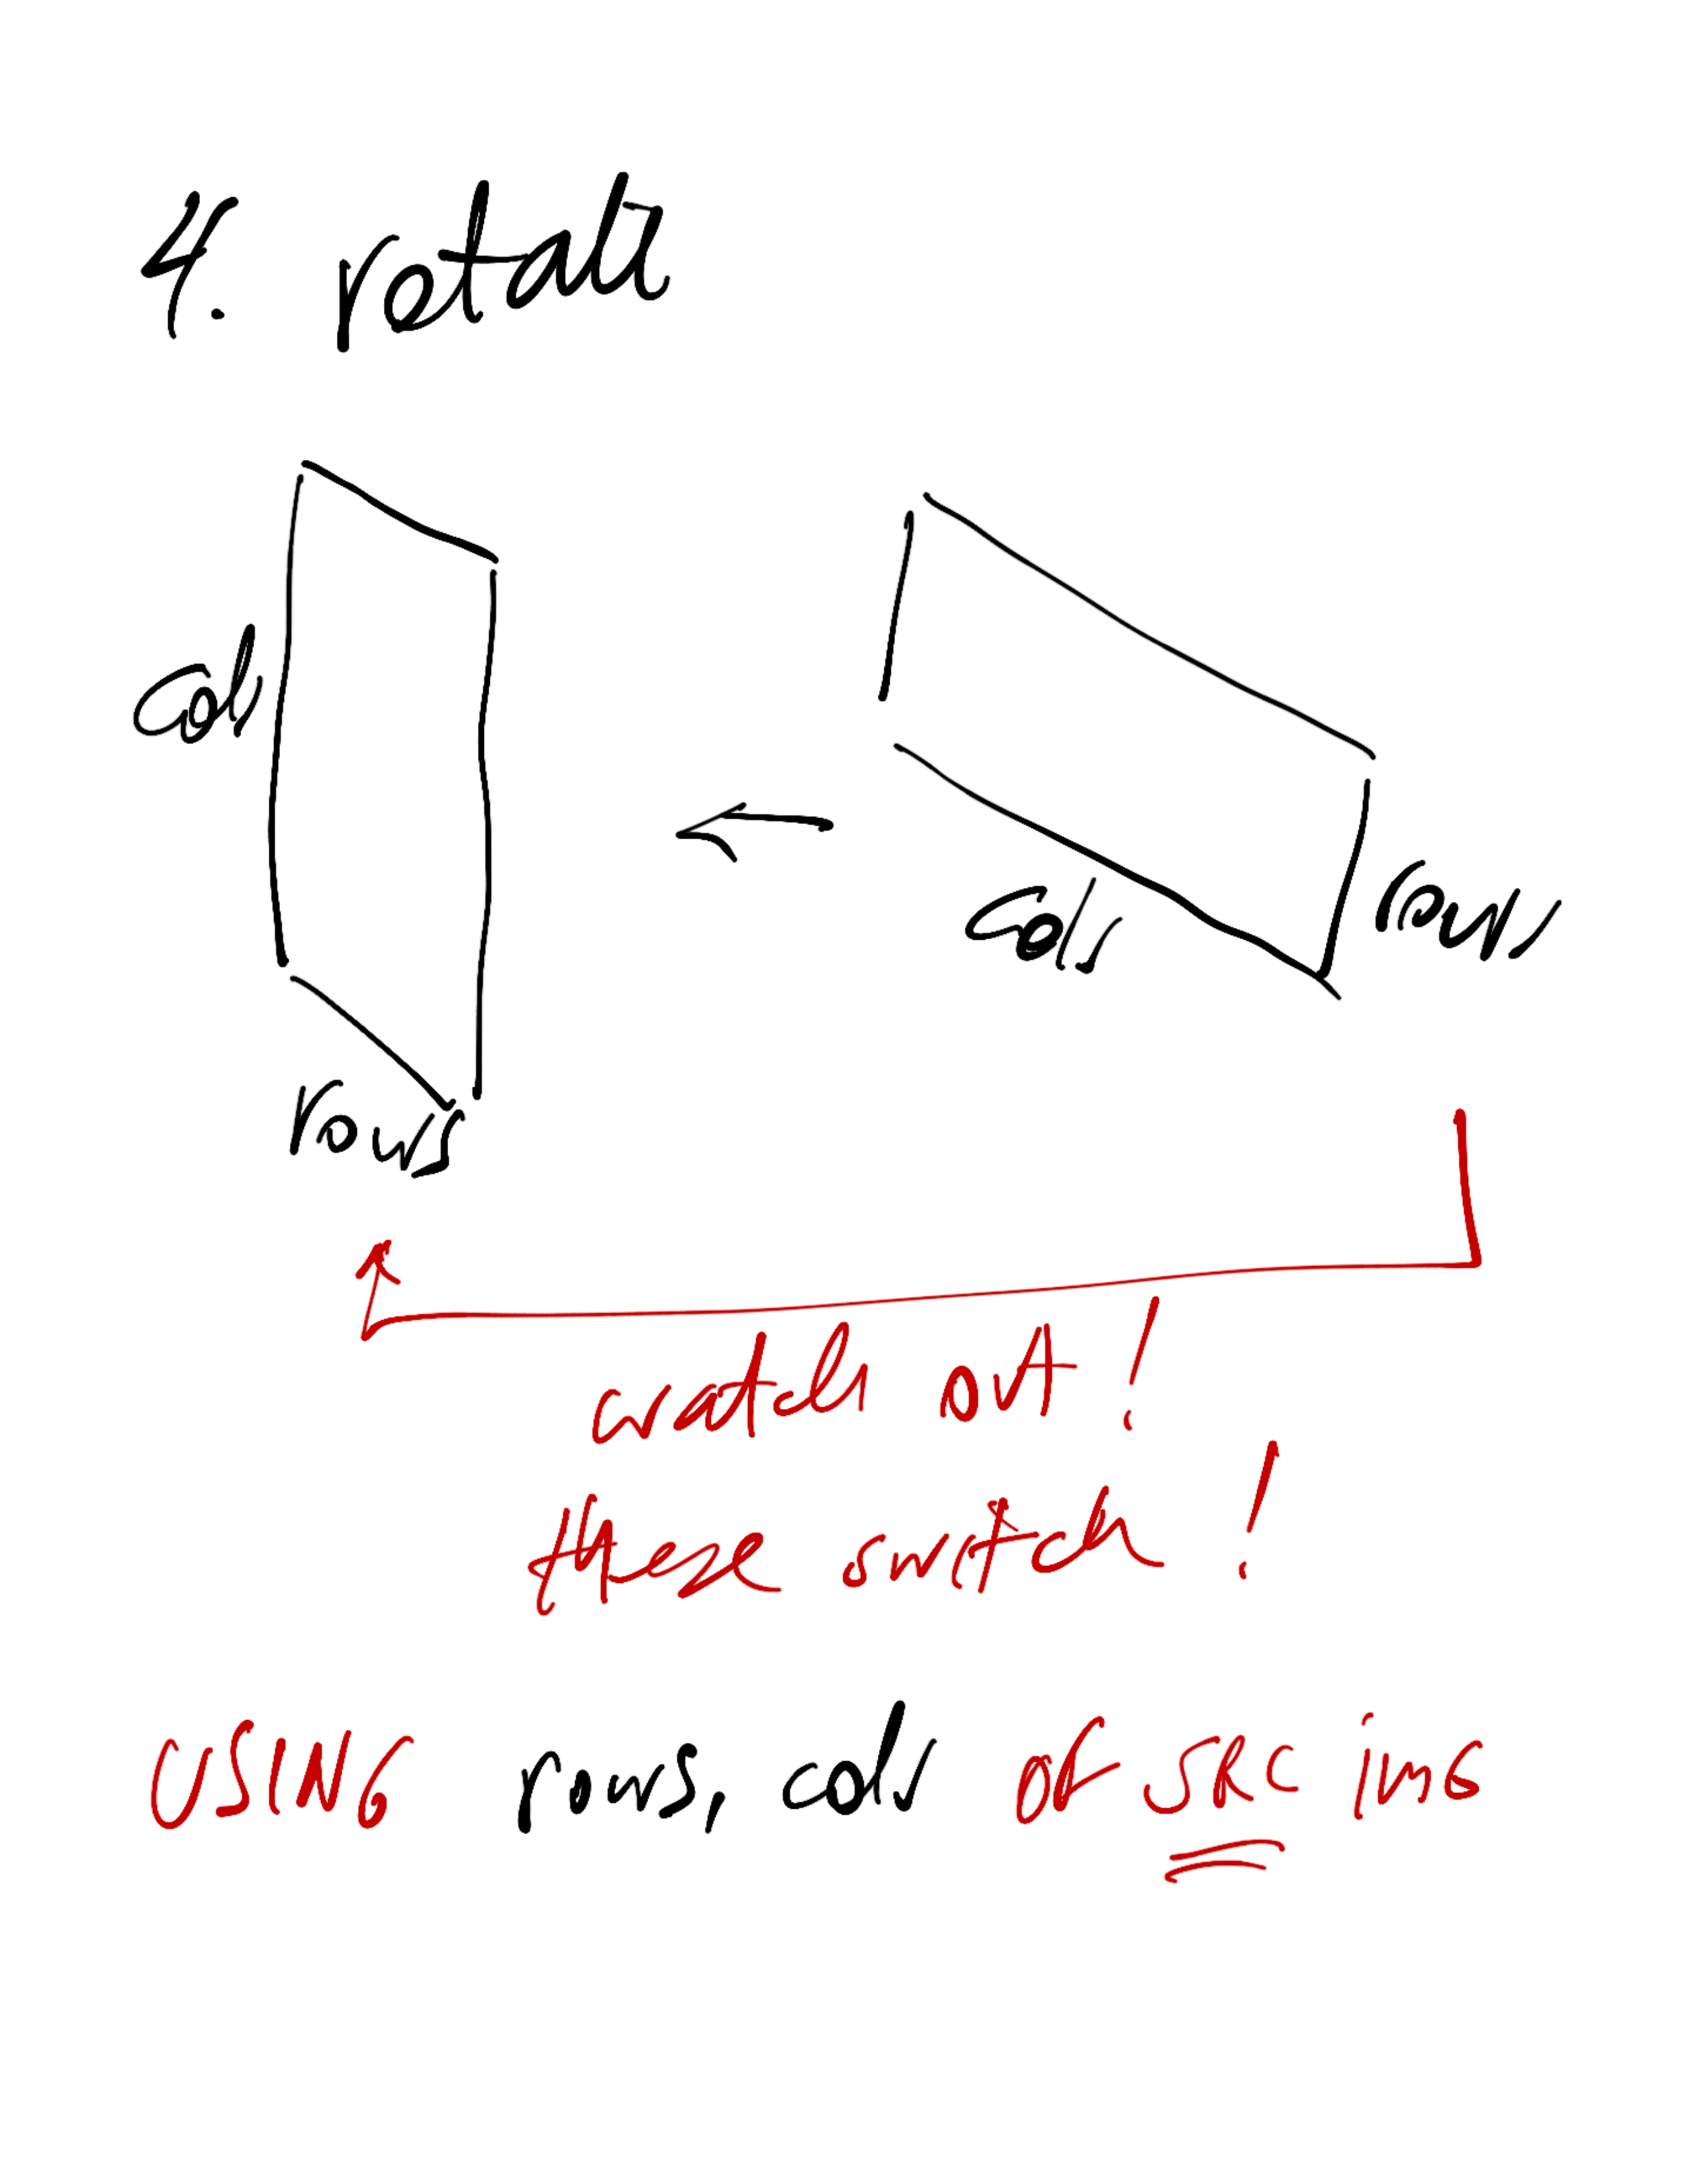 4. rotate
cols
cols
rows
rows
watch out!
these switch!
USING rows, cols OF SRC img